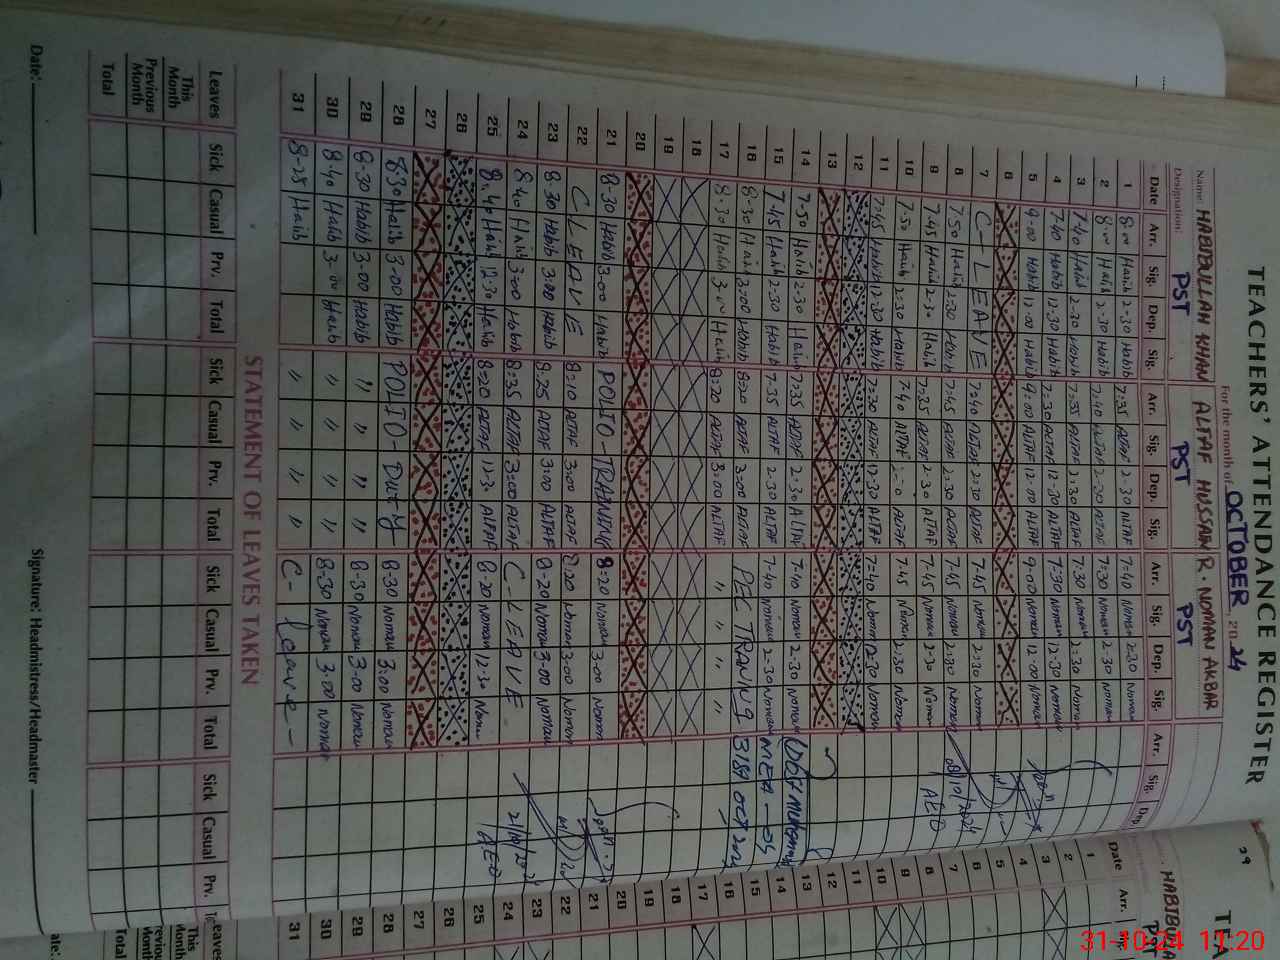 TEACHERS' ATTENDANCE REGISTER
For the month of OCTOBER 2024
Name: HABIBULLAH KHAN ALTAF HUSSAIN R. NOMAN AKBAR
Designation: PST PST PST
Date Arr. Sig. Dep. Sig. Arr. Sig. Dep. Sig. Arr. Sig. Dep. Sig. Arr. Sig. Dep.
1 8:00 Habib 2-30 Habib 7:35 ALTAF 2-30 ALTAF 7-40 Noman 2-30 Noman
2 8:00 Habib 2-30 Habib 7:40 ALTAF 2-30 ALTAF 7:30 Noman 2-30 Noman
3 7-40 Habib 2-30 Habib 7:35 ALTAF 2:30 ALTAF 7:30 Noman 2-30 Noman
4 7-40 Habib 12-30 Habib 7:30 ALTAF 12-30 ALTAF 7:30 Noman 12-30 Noman
5 9-00 Habib 12-00 Habib 9:00 ALTAF 12-00 ALTAF 9-00 Noman 12-00 Noman
6
7 C-LEAVE 7:40 ALTAF 2:30 ALTAF 7-45 Noman 2:30 Noman
8 7-50 Habib 2:30 Habib 7:45 ALTAF 2:30 ALTAF 7-45 Noman 2:30 Noman 08/10/2024
9 7-45 Habib 2-30 Habib 7:35 ALTAF 2-30 ALTAF 7-45 Noman 2-30 Noman AEO
10 7-50 Habib 2:30 Habib 7:40 ALTAF ALTAF 7-45 Noman 2:30 Noman
11 7-45 Habib 12-30 Habib 7:30 ALTAF 12-30 ALTAF 7-40 Noman 12-30 Noman
12
13
14 7-50 Habib 2-30 Habib 7:35 ALTAF 2-30 ALTAF 7-40 Noman 2-30 Noman
15 7-45 Habib 2-30 Habib 7-35 ALTAF 2-30 ALTAF 7-40 Noman 2-30 Noman MEA-
16 8-30 Habib 3:00 Habib 8:20 ALTAF 3:00 ALTAF PEC TRAINING OCT 2024
17 8-30 Habib 3:00 Habib 8:20 ALTAF 3:00 ALTAF " " " "
18
19
20
21 8-30 Habib 3-00 Habib POLIO-TRAINING 8:20 Noman 3-00 Noman
22 C LEAVE 8:10 ALTAF 3:00 ALTAF 8:20 Noman 3-00 Noman
23 8-30 Habib 3:00 Habib 8:25 ALTAF 3:00 ALTAF 8-20 Noman 3-00 Noman
24 8-40 Habib 3:00 Habib 8:35 ALTAF 3:00 ALTAF C-LEAVE
25 8-40 Habib 12-30 Habib 8:20 ALTAF 12-30 ALTAF 8-20 Noman 12-30 Noman AEO
26
27
28 8:30 Habib 3-00 Habib POLIO-DUTY 8-30 Noman 3:00 Noman
29 8-30 Habib 3-00 Habib " " " " 8-30 Noman 3-00 Noman
30 8-40 Habib 3-00 Habib " " " " 8-30 Noman 3-00 Noman
31 8-28 Habib " " " " C-leave-
STATEMENT OF LEAVES TAKEN
Leaves Sick Casual Prv. Total Sick Casual Prv. Total Sick Casual Prv. Total Sick Casual Prv.
This Month
Previous Month
Total
Date: Signature: Headmistress/Headmaster
29
TEA
HABIBU
PST
Date Arr.
1
2
3
4
5
6
7
8
9
10
11
12
13
14
15
16
17
18
19
20
21
22
23
24
25
26
27
28
29
30
31
31-10-24 11:20